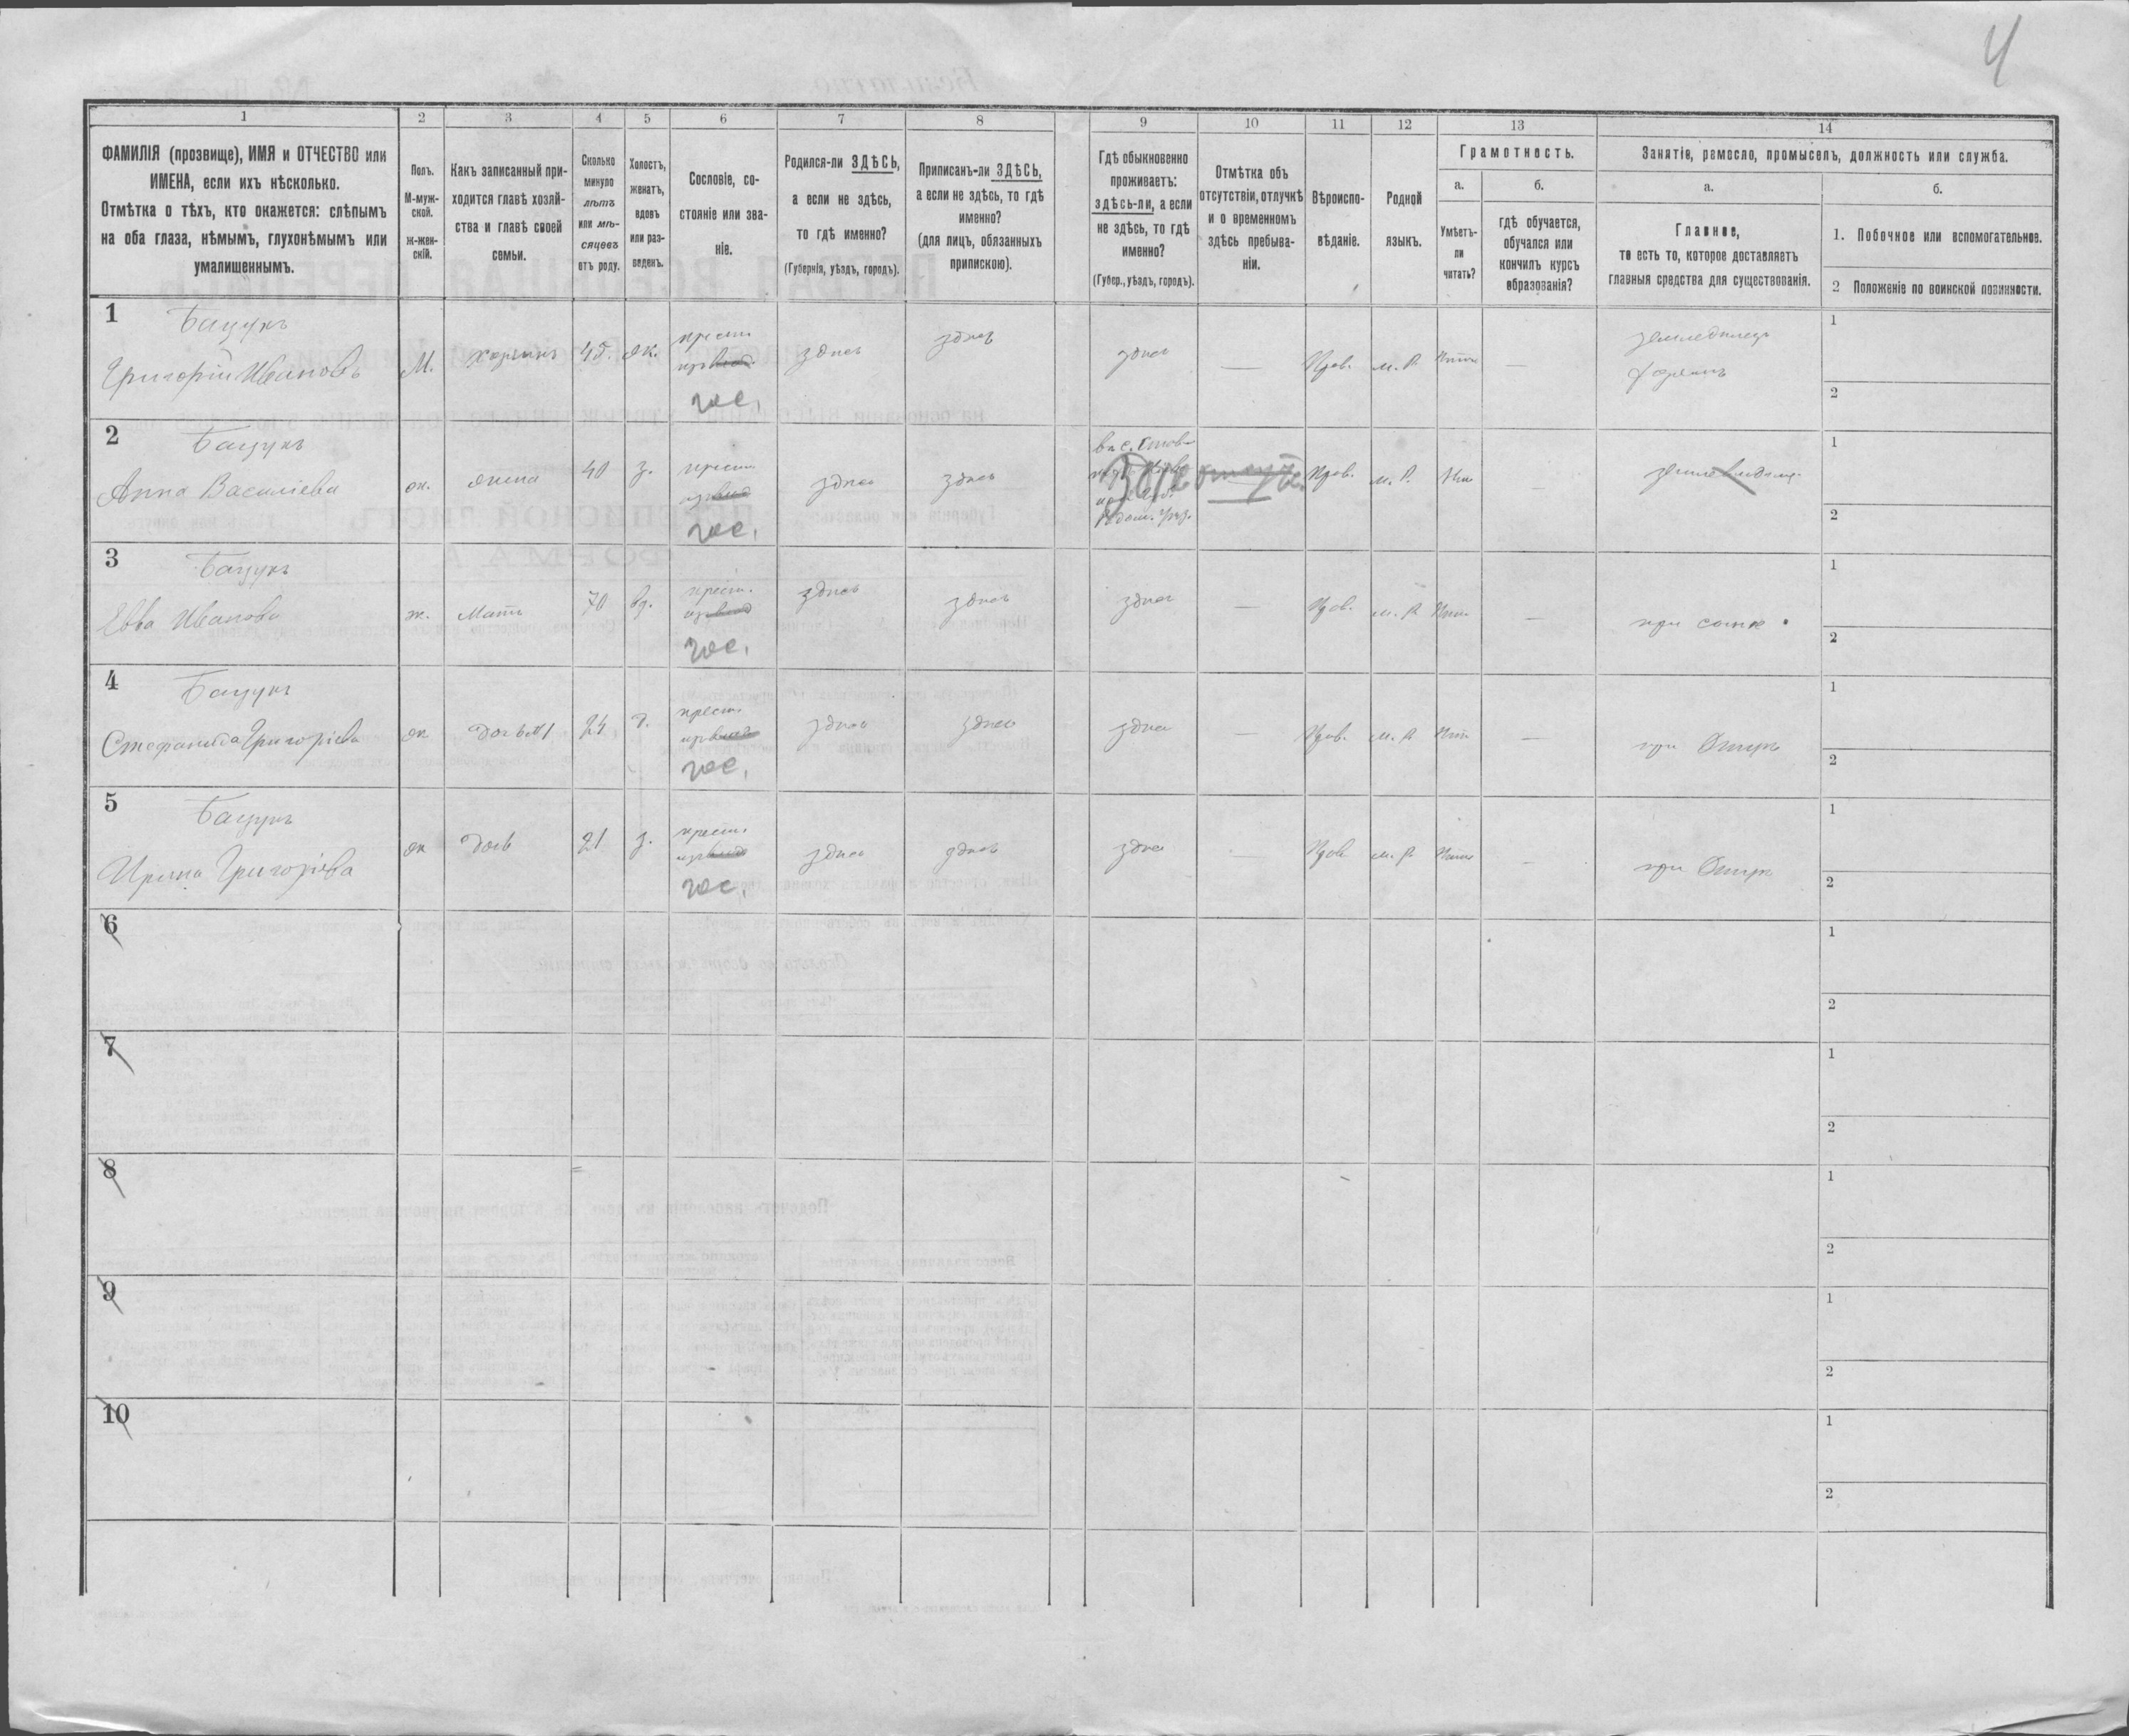 4
1
2
3
4
5
6
7
8
9
10
11
12
13
14
ФАМИЛІЯ (прозвище), ИМЯ и ОТЧЕСТВО или
ИМЕНА, если ихъ нѣсколько.
Отмѣтка о тѣхъ, кто окажется: слѣпымъ
на оба глаза, нѣмымъ, глухонѣмымъ или
умалишеннымъ.
Полъ.
М-муж-
ской.
ж-жен-
скій.
Какъ записанный при-
ходится главѣ хозяй-
ства и главѣ своей
семьи.
Сколько
минуло
лѣтъ
или мѣ-
сяцевъ
отъ роду.
Холостъ,
женатъ,
вдовъ
или раз-
веденъ.
Сословіе, со-
стояніе или зва-
ніе.
Родился-ли ЗДѢСЬ,
а если не здѣсь,
то гдѣ именно?
(Губернія, уѣздъ, городъ).
Приписанъ-ли ЗДѢСЬ,
а если не здѣсь, то гдѣ
именно?
(для лицъ, обязанныхъ
припискою).
Гдѣ обыкновенно
проживаетъ:
здѣсь-ли, а если
не здѣсь, то гдѣ
именно?
(Губер., уѣздъ, городъ).
Отмѣтка объ
отсутствіи, отлучкѣ
и о временномъ
здѣсь пребыва-
ніи.
Вѣроиспо-
вѣданіе.
Родной
языкъ.
Грамотность.
а.
Умѣетъ-
ли
читать?
б.
гдѣ обучается,
обучался или
кончилъ курсъ
образованія?
Занятіе, ремесло, промыселъ, должность или служба.
а.
Главное,
то есть то, которое доставляетъ
главныя средства для существованія.
б.
1. Побочное или вспомогательное.
2 Положеніе по воинской повинности.
1
Бацукъ
Григорій Ивановъ
М.
хозяинъ
45.
ж.
крест.
гос.
здѣсь
здѣсь
здѣсь
—
Прав.
м. Р.
—
земледѣлецъ
хозяинъ
1
2
2
Бацукъ
Анна Василіева
ж.
жена
40
з.
крест.
гос.
здѣсь
здѣсь
Прав.
м. Р.
—
1
2
3
Бацукъ
Евва Иванова
ж.
мать
70
вд.
крест.
гос.
здѣсь
здѣсь
здѣсь
—
Прав.
м. Р.
—
при сынѣ
1
2
4
Бацукъ
Стефанида Григоріева
ж
дочь №1
24
крест.
гос.
здѣсь
здѣсь
здѣсь
—
Прав.
м. Р.
—
при отцѣ
1
2
5
Бацукъ
Ирина Григоріева
ж
дочь
21
крест.
гос.
здѣсь
здѣсь
здѣсь
—
Прав.
м. Р.
—
при отцѣ
1
2
6
1
2
7
1
2
8
1
2
9
1
2
10
1
2